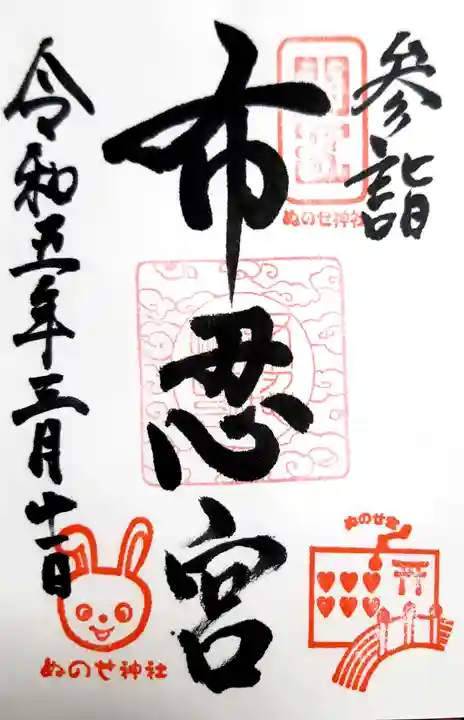 参詣
ぬのせ神社
布忍宮
令和五年三月十一日
ぬのせ宮
ぬのせ神社